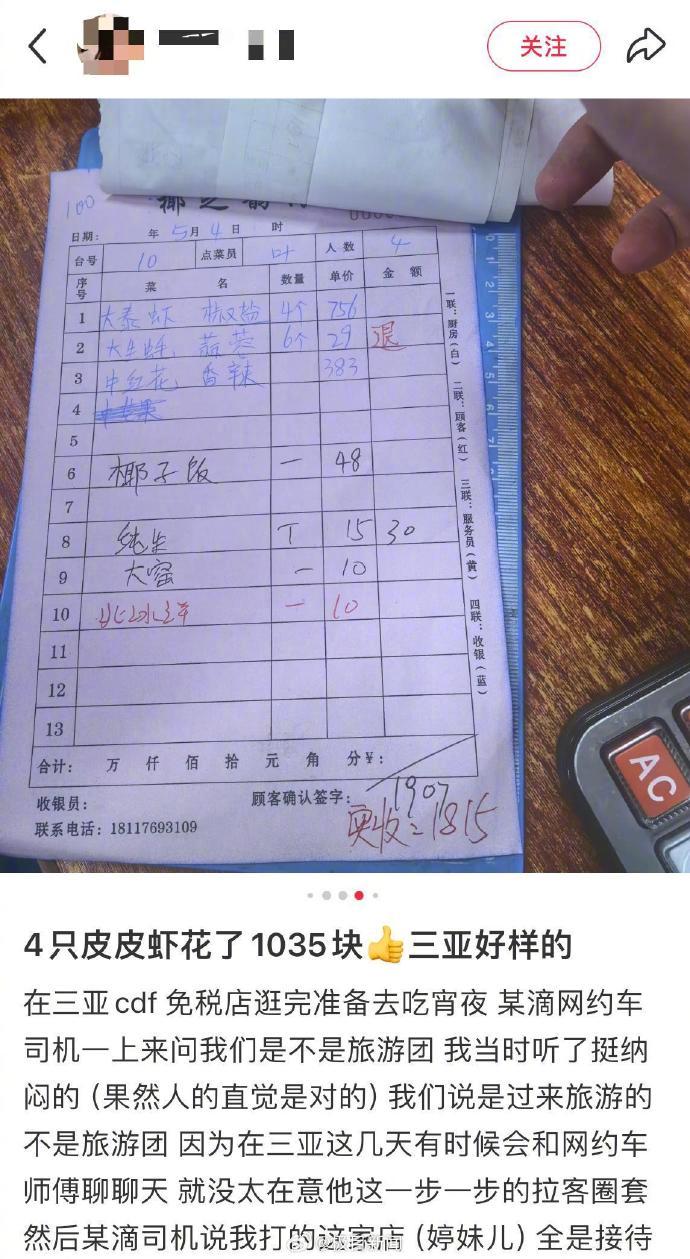 关注
100
日期： 年 5月 4日 时
台号 10 点菜员 叶 人数 4
序号 菜 名 数量 单价 金额
1 大泰虾 椒盐 4个 756
2 大生蚝 蒜蓉 6个 29 退
3 中红花 香辣 383
4
5
6 椰子饭 一 48
7
8 纯生 T 15 30
9 大窑 一 10
10 一 10
11
12
13
合计： 万 仟 佰 拾 元 角 分￥：
收银员： 顾客确认签字： 1907
联系电话：18117693109 实收：1815
一联：厨房（白）
二联：顾客（红）
三联：服务员（黄）
四联：收银（蓝）
AC
4只皮皮虾花了1035块👍三亚好样的
在三亚cdf 免税店逛完准备去吃宵夜 某滴网约车
司机一上来问我们是不是旅游团 我当时听了挺纳
闷的（果然人的直觉是对的）我们说是过来旅游的
不是旅游团 因为在三亚这几天有时候会和网约车
师傅聊聊天 就没太在意他这一步一步的拉客圈套
然后某滴司机说我打的这家店（婷妹儿）全是接待
@极目新闻